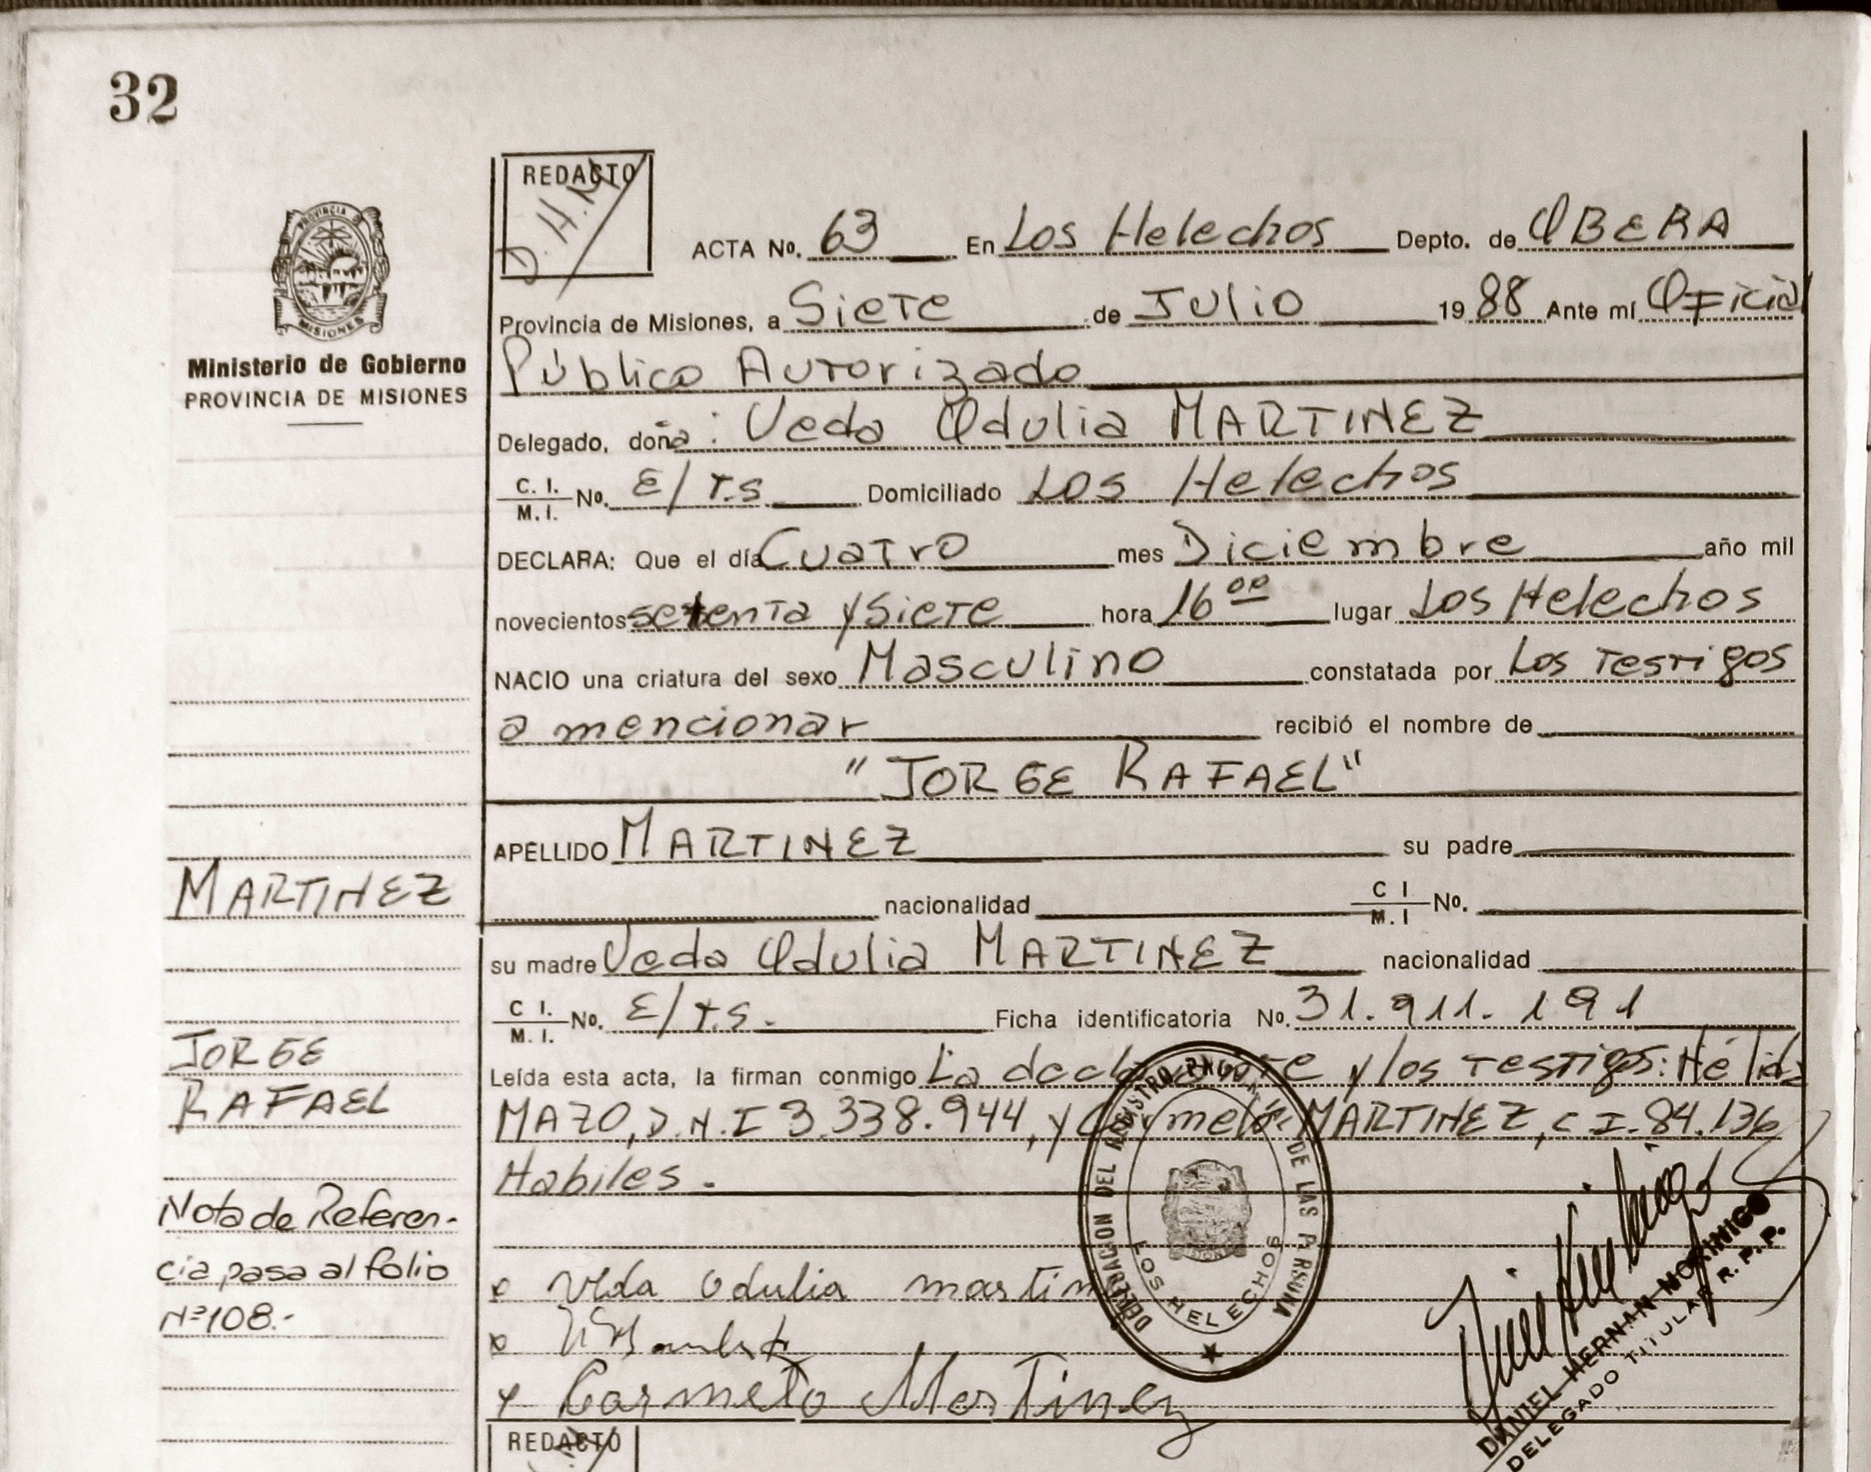 32
REDACTO
D.H.M
ACTA No. 63 En Los Helechos Depto. de OBERA
Provincia de Misiones, a Siete de Julio 1988 Ante mí Oficial
Público Autorizado
Delegado, doña: Veda Odulia MARTINEZ
C. I. / M. I. No. E/T.S Domiciliado Los Helechos
DECLARA: Que el día Cuatro mes Diciembre año mil
novecientos setenta y Siete hora 16 00 lugar Los Helechos
NACIO una criatura del sexo Masculino constatada por Los Testigos
a mencionar recibió el nombre de
"JORGE RAFAEL"
APELLIDO MARTINEZ su padre
nacionalidad C I / M. I No.
su madre Veda Odulia MARTINEZ nacionalidad
C I. / M. I. No. E/T.S. Ficha identificatoria No. 31.911.191
Leída esta acta, la firman conmigo La declarante y los Testigos: Hélida
MAZO, D.N.I 3.338.944, y Carmelo MARTINEZ, C I. 84.136
Habiles.
Veda Odulia martin
Carmelo Martinez
REDACTO
PROVINCIA DE
MISIONES
Ministerio de Gobierno
PROVINCIA DE MISIONES
MARTINEZ
JORGE
RAFAEL
Nota de Referen-
cia pasa al folio
Nº 108.-
DELEGACION DEL REGISTRO PROVINCIAL DE LAS PERSONAS
LOS HELECHOS
DANIEL HERNAN MORINIGO
DELEGADO TITULAR R. P. P.